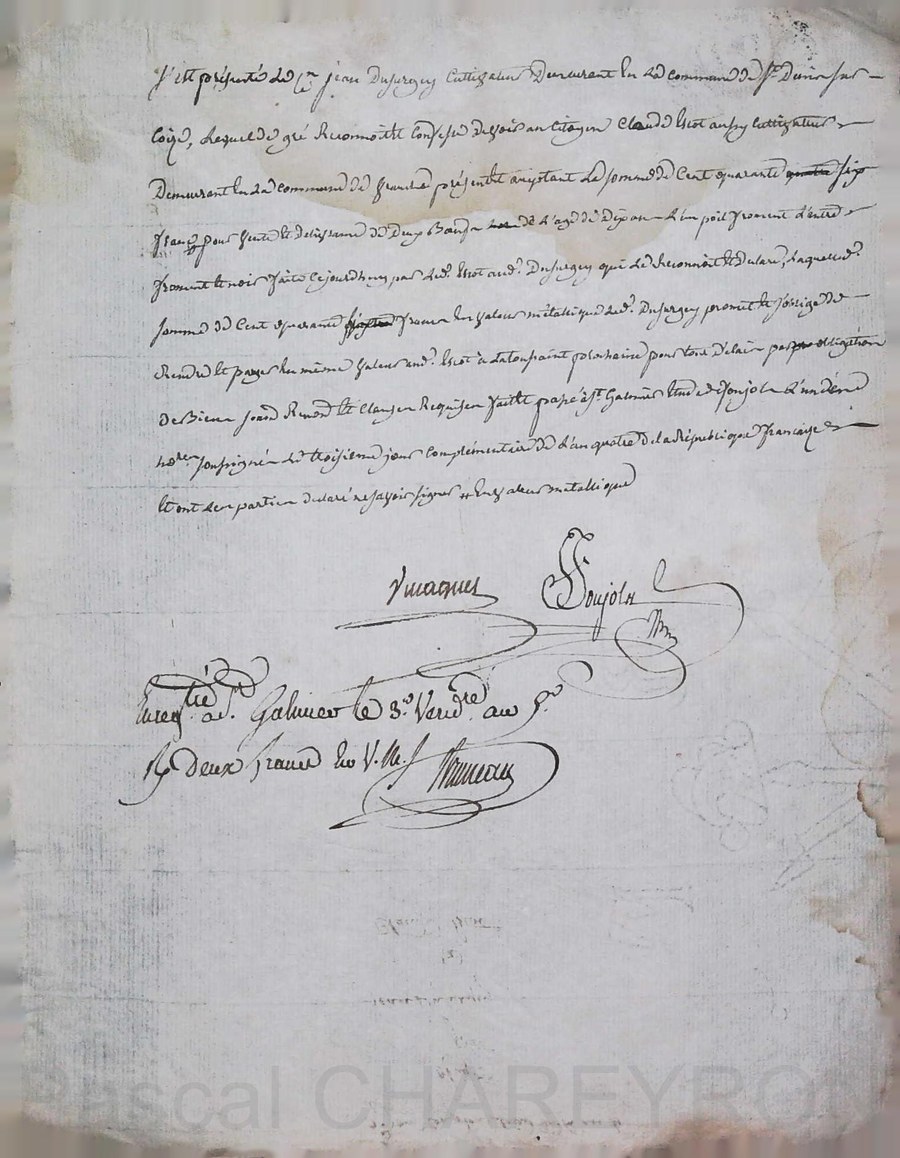 S'est présenté Le C.en jean Dusurgey Cultivateur Demeurant En La commune de St. Denis sur
Coize, Lequel de gré Reconnoit et Confesse devoir au Citoyen Claude Escot aussy Cultivateur
Demeurant En La commune de présent et acceptant La somme de Cent quarante six
francs pour Vente et delivrance de Deux Boeufs de L'age de Dix ans L'un poil froment L'autre
froment et noir faite cejourdhuy par Led. Escot aud. Dusurgey qui Le Reconnoit et Declare, Laquelle d.
somme de Cent quarante francs En Valeur métallique Led. Dusurgey promet et s'oblige de
Rendre et payer En même Valeur aud. Escot à Latoussaint prochaine pour tout Delais par obligation
de Biens soumis Renond et Clauses Requises fait et passé à St. Galmier Etude de Soujols L'un des
no.res soussignés Le troisieme jour Complémentaire de L'an quatre de la République française
Et ont Les parties declaré ne savoir signer En valeur metallique
Soujols
Enreg.tré a St. Galmier le 3.e Vend.re an 5.e
R. deux francs En V. M.
Pascal CHAREYRON